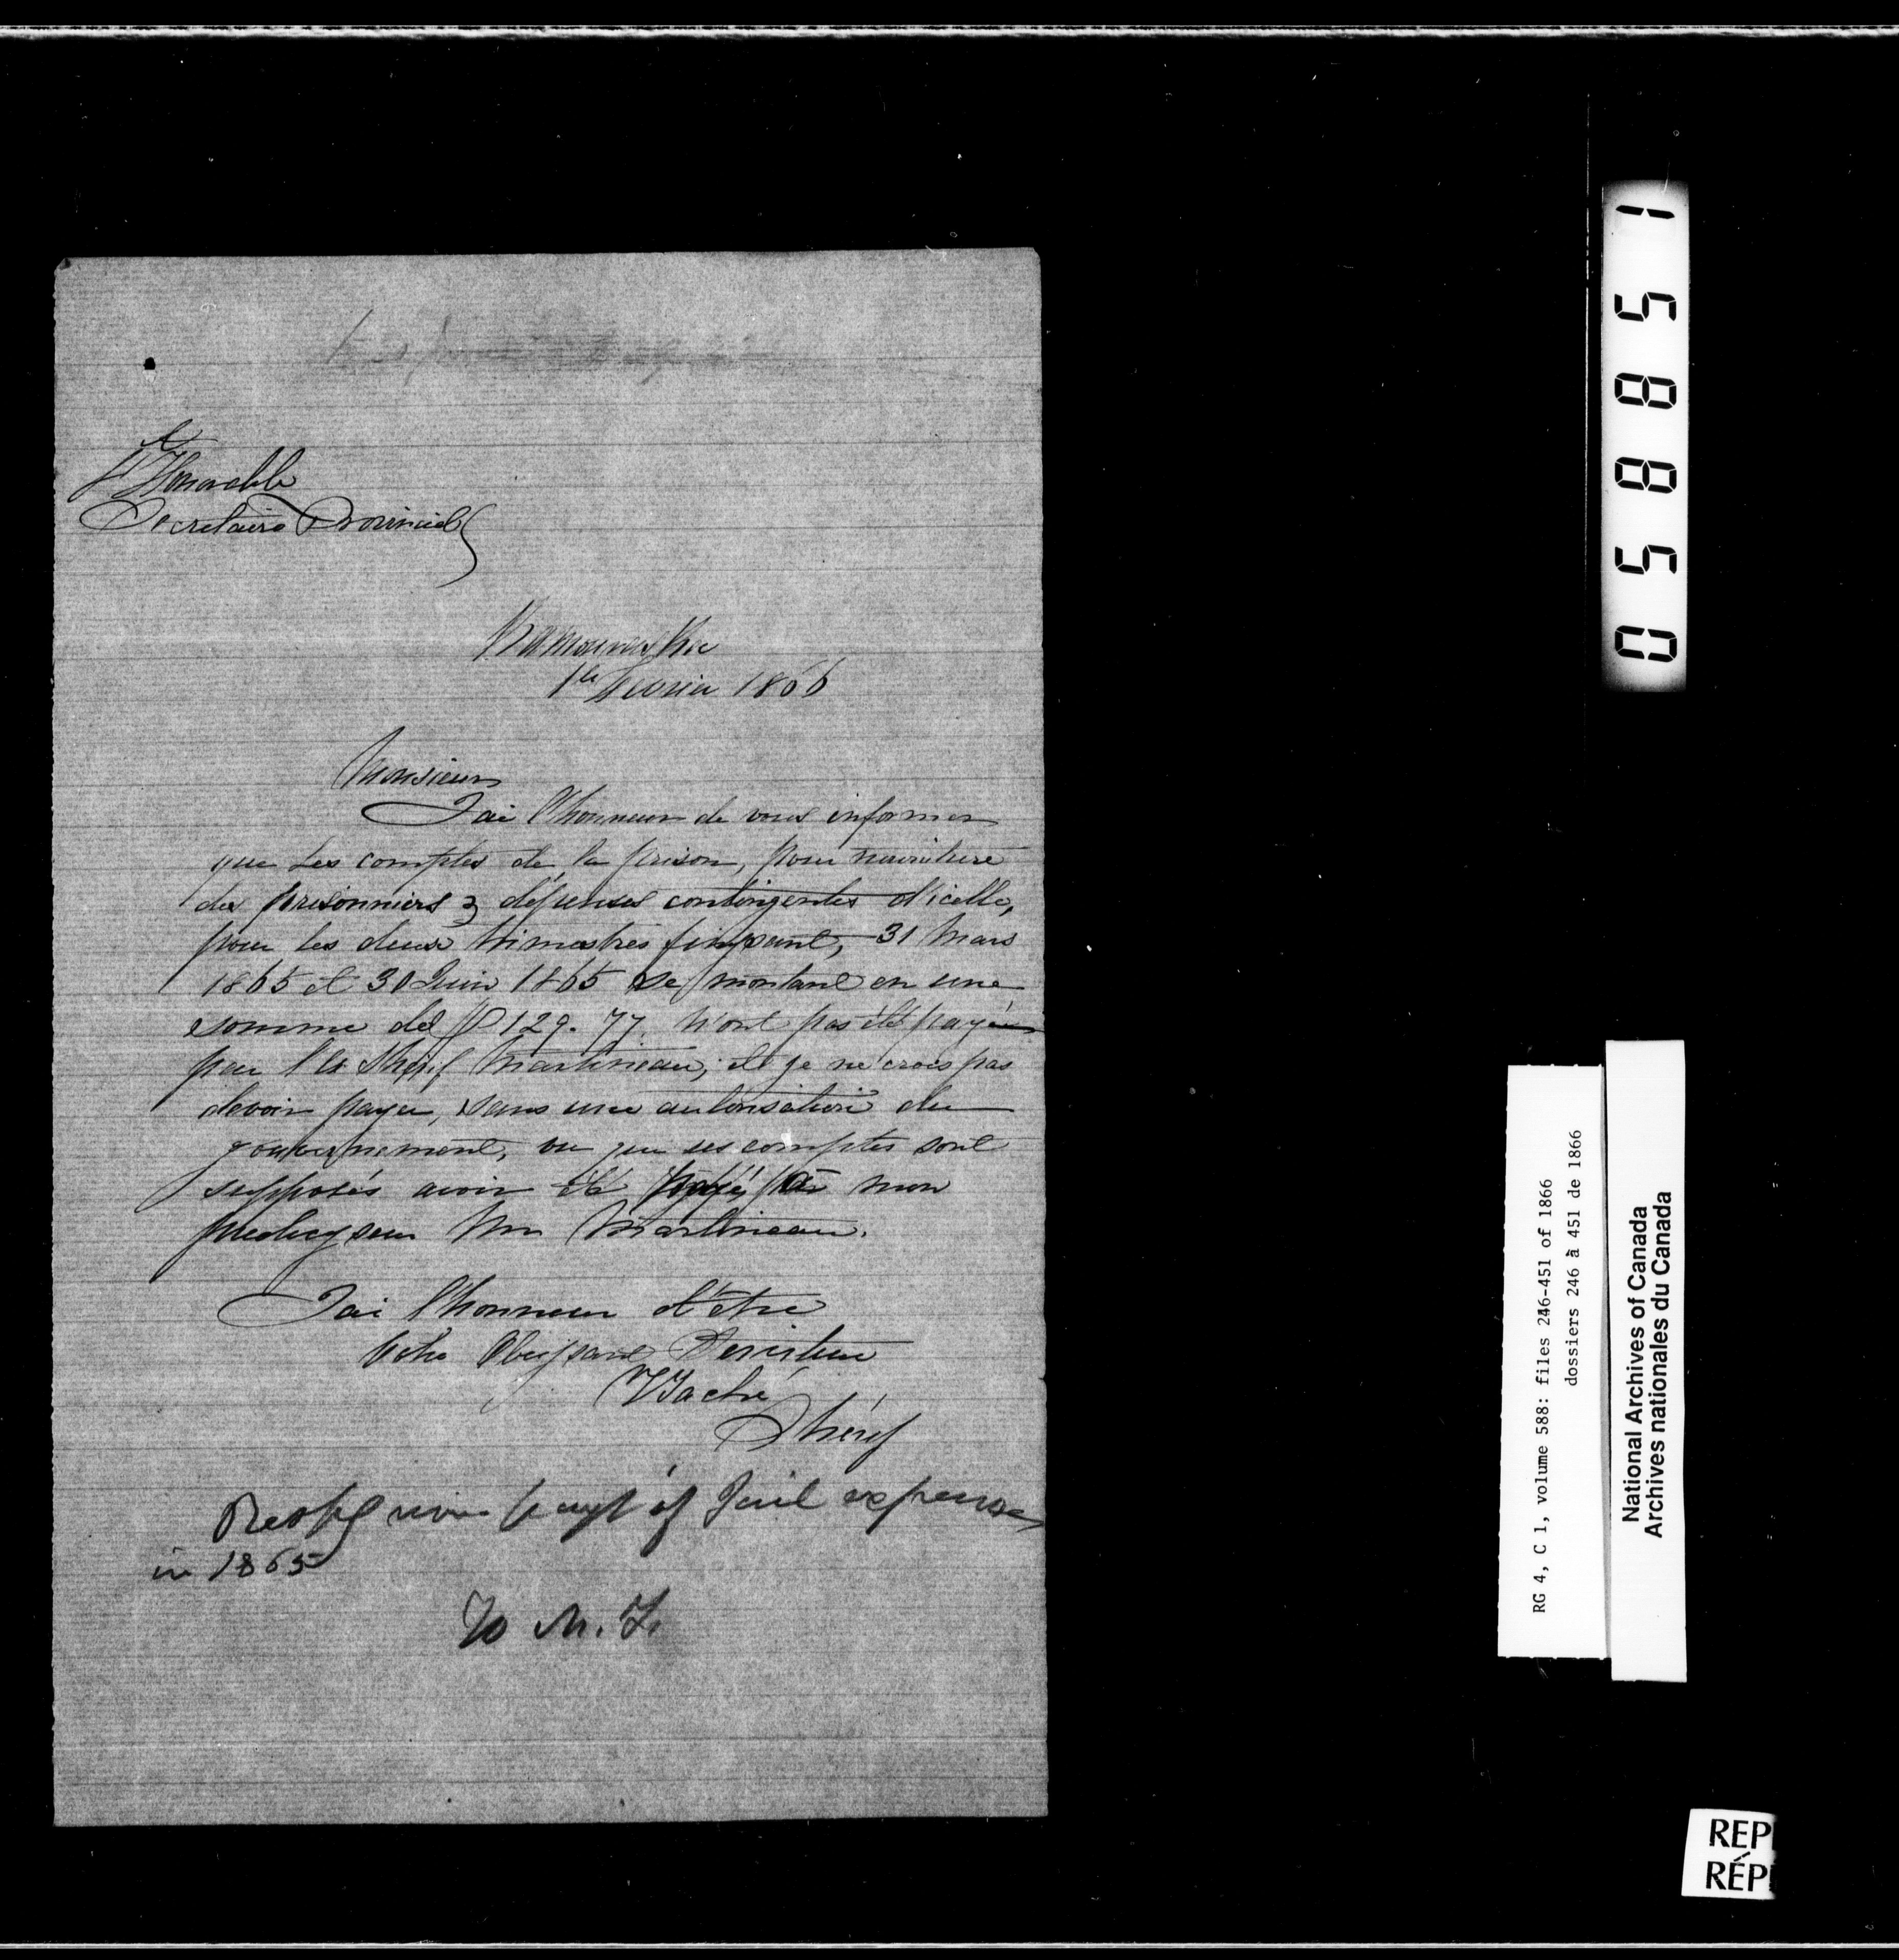 A
L'Honorable
Secretaire Provincial
Kamouraska
1er Fevrier 1866
Monsieur
J'ai l'honneur de vous informer
que les comptes de la prison, pour nourriture
des prisonniers & dépenses contingentes d'icelle,
pour les deux trimestres finissant, 31 Mars
1865 et 30 Juin 1865 se montant en une
somme de $129.77, n'ont pas été payés
par le Shérif Martineau, et je ne crois pas
devoir payer, sans une autorisation du
gouvernement, vu que ses comptes sont
supposés avoir été payés par mon
predecesseur Mr Martineau.
J'ai l'honneur d'être
Votre Obeissant Serviteur
V Taché
Shérif
Respg non payt of Jail expenses
in 1865
To M. F.
05885 1
RG 4, C 1, volume 588: files 246-451 of 1866
dossiers 246 à 451 de 1866
National Archives of Canada
Archives nationales du Canada
REP
RÉP